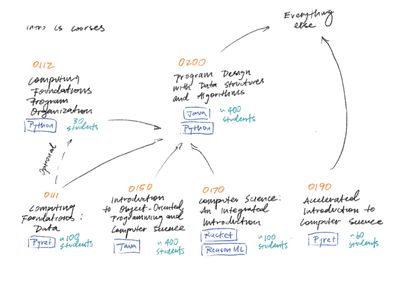 intro cs courses
Everything
else
0112
Computing
Foundations
Program
Organization
Python
30
students
0200
Program Design
with Data Structures
and Algorithms
Java
Python
~400
students
optional
0111
Computing
Foundations:
Data
Pyret
~100
students
0150
Introduction
to Object-Oriented
Programming and
Computer Science
Java
~400
students
0170
Computer Science:
An Integrated
Introduction
Racket
ReasonML
~100
students
0190
Accelerated
Introduction to
Computer Science
Pyret
~60
students